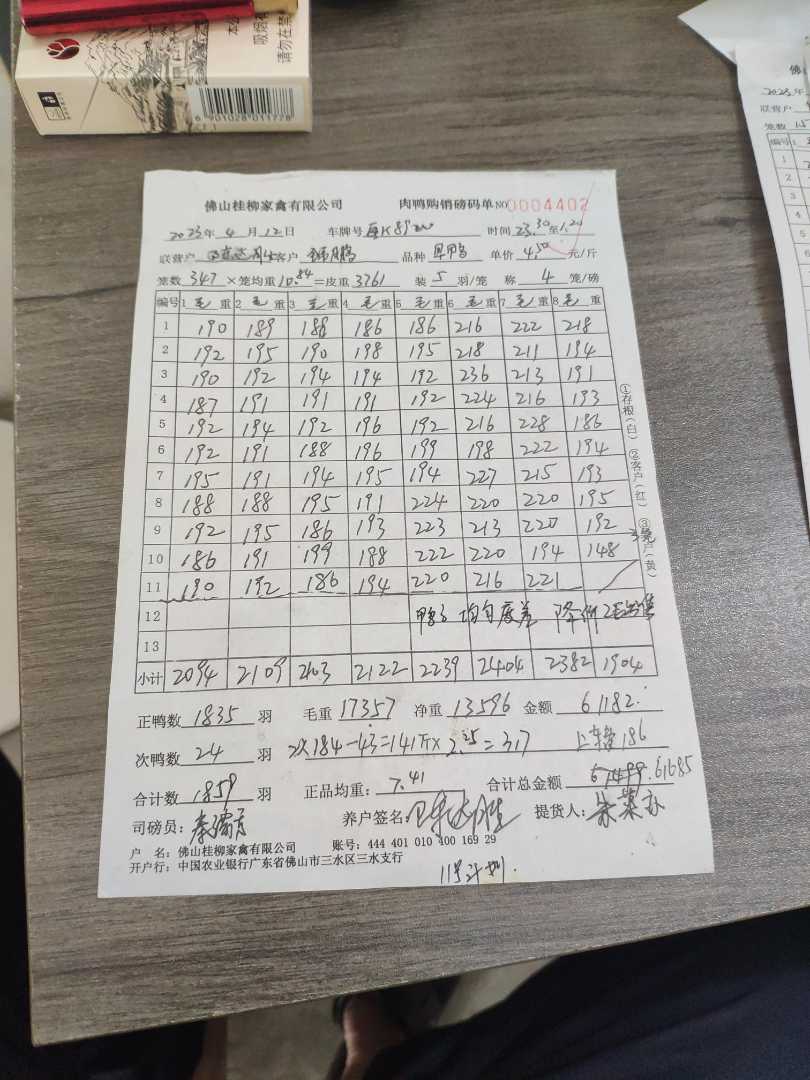 本公
吸烟有
请勿在禁
6 901028 011778
佛山桂柳家禽有限公司 肉鸭购销磅码单 NO 0004402
2023年4月12日 车牌号 时间 23.30至1.20
联营户 客户 品种 旱鸭 单价 4.50 元/斤
笼数 347 ×笼均重 10.84 =皮重 3761 装 5 羽/笼 称 4 笼/磅
编号 1 毛 重 2 毛 重 3 毛 重 4 毛 重 5 毛 重 6 毛 重 7 毛 重 8 毛 重
1 190 189 188 186 186 216 222 218
2 192 195 190 198 195 218 211 194
3 190 192 194 194 192 236 213 191
4 187 191 191 191 192 224 216 193
5 192 194 192 196 192 216 228 186
6 192 191 188 196 199 198 222 194
7 195 191 194 195 194 227 215 193
8 188 188 195 191 224 220 220 195
9 192 195 186 193 223 213 220 192
10 186 191 199 188 222 220 194 148
11 190 192 186 194 220 216 221
12 鸭子 均匀度差 降价
13
小计 2094 2109 2103 2122 2239 2404 2382 1904
①存根(白) ②客户(红) ③ 户(黄)
正鸭数 1835 羽 毛重 17357 净重 13596 金额 61182.
次鸭数 24 羽 184-43=141斤×2.25=317 上车费186
合计数 1859 羽 正品均重: 7.41 合计总金额 61685
司磅员: 养户签名: 提货人:
户 名: 佛山桂柳家禽有限公司 账号: 444 401 010 400 169 29
开户行: 中国农业银行广东省佛山市三水区三水支行
11号计划.
佛
2023年
联营户
笼数 15
编号 1
1
2
3
4
5
6